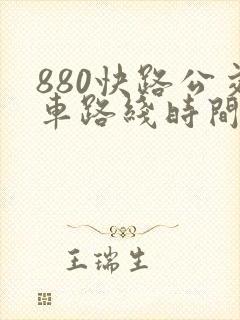 880快路公交
車路綫時間
王瑞生